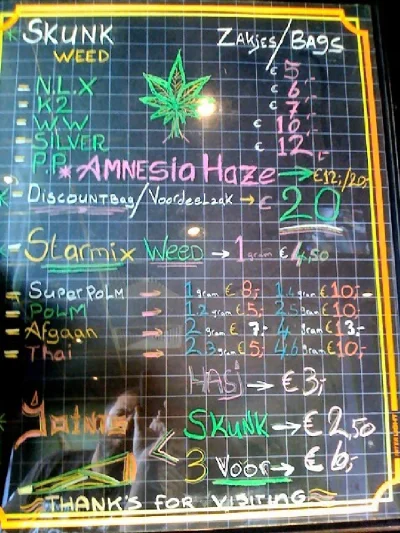 SKUNK ZAKJES/BAGS
WEED
€ 5,-
- N.L.X € 6,-
- K2 € 7,-
- W.W € 10,-
- SILVER € 12,-
- P.P.* AMNESIA HAZE → €12,-/20,-
- DISCOUNTBAG/VOORDEELZAK → € 20
- Starmix WEED → 1 gram € 4,50
- SUPERPOLM → 1 gram € 8,- 1,4 gram € 10,-
- POLM → 1.2 gram € 5,- 2.5 gram € 10,-
- Afgaan → 2 gram € 7,- 4 gram € 13,-
- Thai → 2.3 gram € 5,- 4,6 gram € 10,-
HASJ → € 3,-
Joints < SKUNK → € 2,50
3 VOOR → € 6,-
THANK'S FOR VISITING